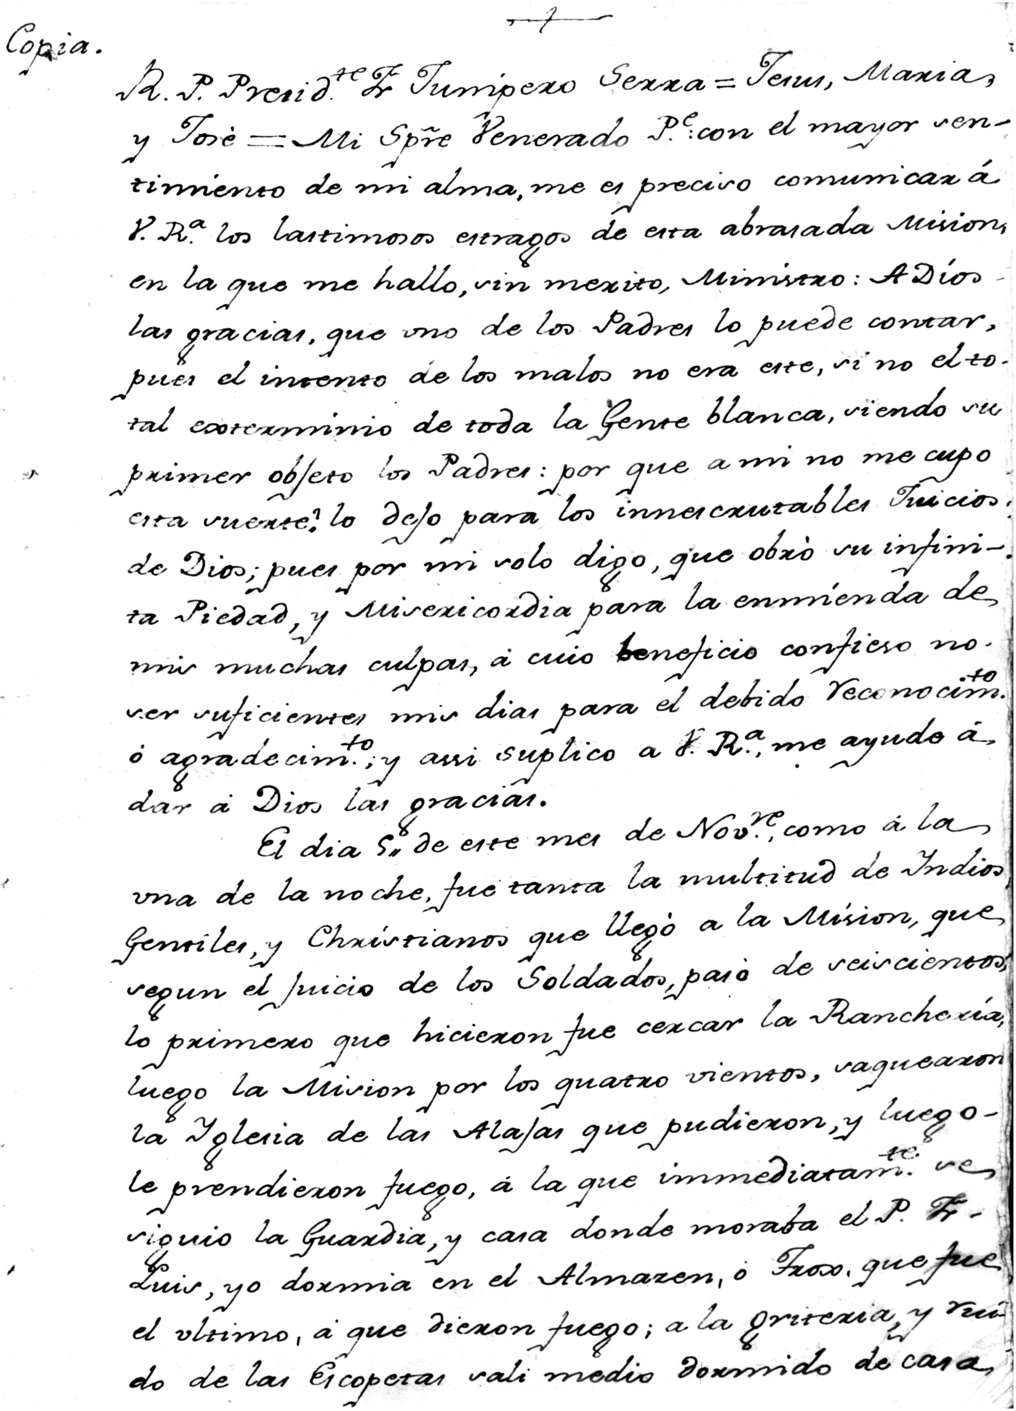 Copia.
R. P. Presid.te Fr Junípero Serra = Jesus, Maria,
y José = Mi Spr̃e Venerado P.e: con el mayor sen-
timiento de mi alma, me es preciso comunicar á
V. R.a los lastimosos estragos de esta abrasada Mision,
en la que me hallo, sin merito, Ministro: A Dios
las gracias, que uno de los Padres lo puede contar,
pues el intento de los malos no era este, si no el to-
tal exterminio de toda la Gente blanca, siendo su
primer objeto los Padres: por que a mi no me cupo
esta suerte? lo dejo para los innescrutables Juicios
de Dios; pues por mi solo digo, que obró su infini-
ta Piedad, y Misericordia para la enmienda de
mis muchas culpas, á cuio beneficio confieso no
ser suficientes mis dias para el debido reconocim.to
ó agradecim.to; y assi suplico a V. R.a, me ayude á
dar á Dios las gracias.
El dia 5.o de este mes de Nov.re, como á la
una de la noche, fue tanta la multitud de Indios
Gentiles, y Christianos que llegó a la Mision, que
segun el juicio de los Soldados, pasó de seiscientos,
lo primero que hicieron fue cercar la Ranchería,
luego la Mision por los quatro vientos, saquearon
la Yglesia de las Alajas que pudieron, y luego
le prendieron fuego, á la que immediatam.te se
siguio la Guardia, y casa donde moraba el P. Fr
Luis, yo dormia en el Almazen, ó Trox, que fue
el ultimo, á que dieron fuego; a la griteria, y rui-
do de las Escopetas sali medio dormido de casa,